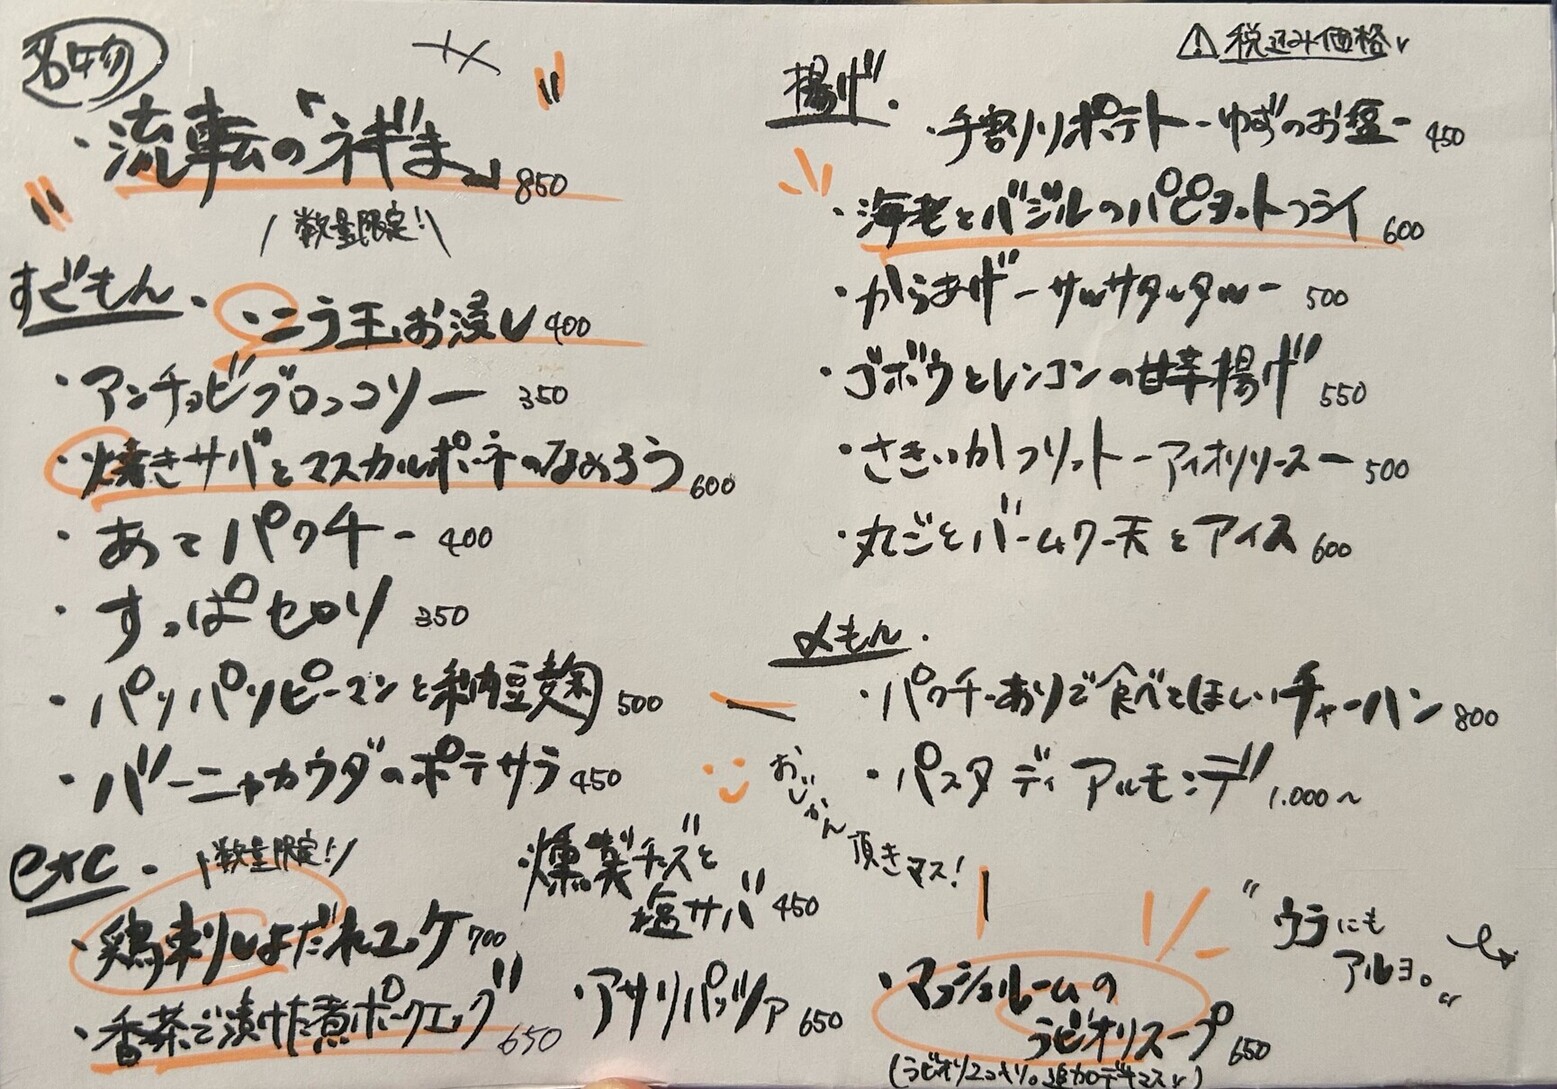 名物
・流転の「ネギま」850
数量限定!!
すぐもん・
・ニラ玉お浸し 400
・アンチョビブロッコリー 350
・焼きサバとマスカルポーネのなめろう 600
・あてパクチー 400
・すっぱセロリ 350
・パリパリピーマンと納豆麹 500
・バーニャカウダのポテサラ 450
etc.
数量限定!
・鶏刺しよだれユッケ 700
・香茶で漬けた煮ポークエッグ 650
・燻製チーズと
塩サバ 450
・アサリパッツァ 650
⚠税込み価格
揚げ.
・手割りポテト-ゆずのお塩- 450
・海老とバジルのパピヨットフライ 600
・からあげ-サルサタルタル- 500
・ゴボウとレンコンの甘辛揚げ 550
・さきいかフリット-アイオリソース- 500
・丸ごとバームクー天とアイス 600
〆もん.
・パクチーありで食べてほしいチャーハン 800
・パスタ ディ アルモンデ 1.000~
おじかん
頂きマス!
・マッシュルームの
ラビオリスープ 650
(ラビオリ2コ入り。追加デキマス)
"ウラにも
アルヨ。"